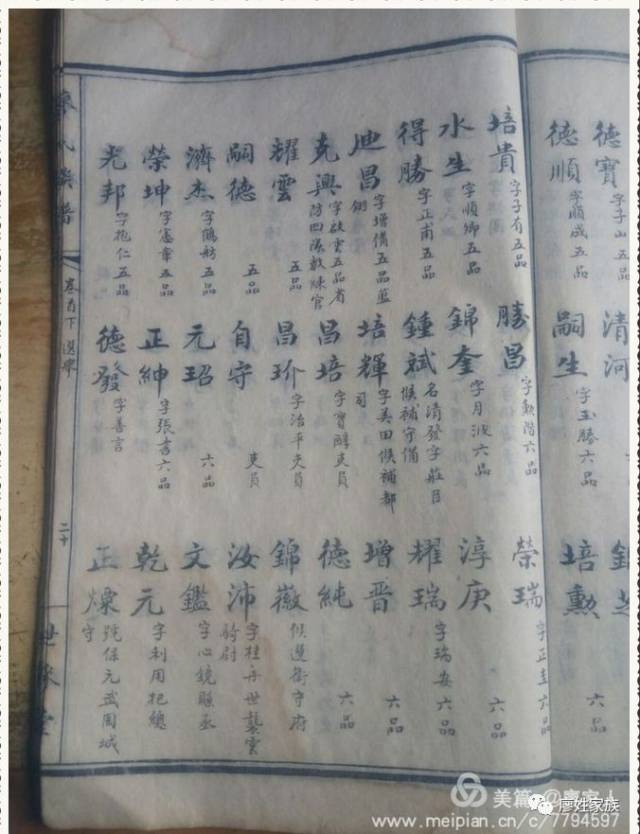 德寶 字子山五品 清河
德順 字順成五品 嗣生 字玉勝六品 培勳 六品
培貴 字子有五品 勝昌 字勲階六品 榮瑞 字正圭六品
水生 字順鄉五品 錦奎 字月波六品 淳庚 六品
得勝 字正甫五品 鍾斌 名清發字莊目候補守備 耀瑞 字瑞安六品
迪昌 字增僃五品藍翎 培輝 字美田候補都司 增晋 六品
克興 字啟重五品省防四隊教陳官 昌培 字寶醇吏員 德純 六品
耀雲 五品 昌玠 字治平吏員 錦薇 候選衛守府
嗣德 五品 自守 吏員 汝沛 字桂丹世襲雲騎尉
濟杰 字鵰舫五品 元玿 六品 文鑑 字心鏡縣丞
榮坤 字憲章五品 正紳 字張書六品 乾元 字利用把總
光邦 字抱仁五品 德發 字善言 正煉 號保元武岡城守
廖氏族譜 卷首下 選舉 二十 世綵堂
美篇 @廖家人
廖姓家族
www.meipian.cn/c/7794597